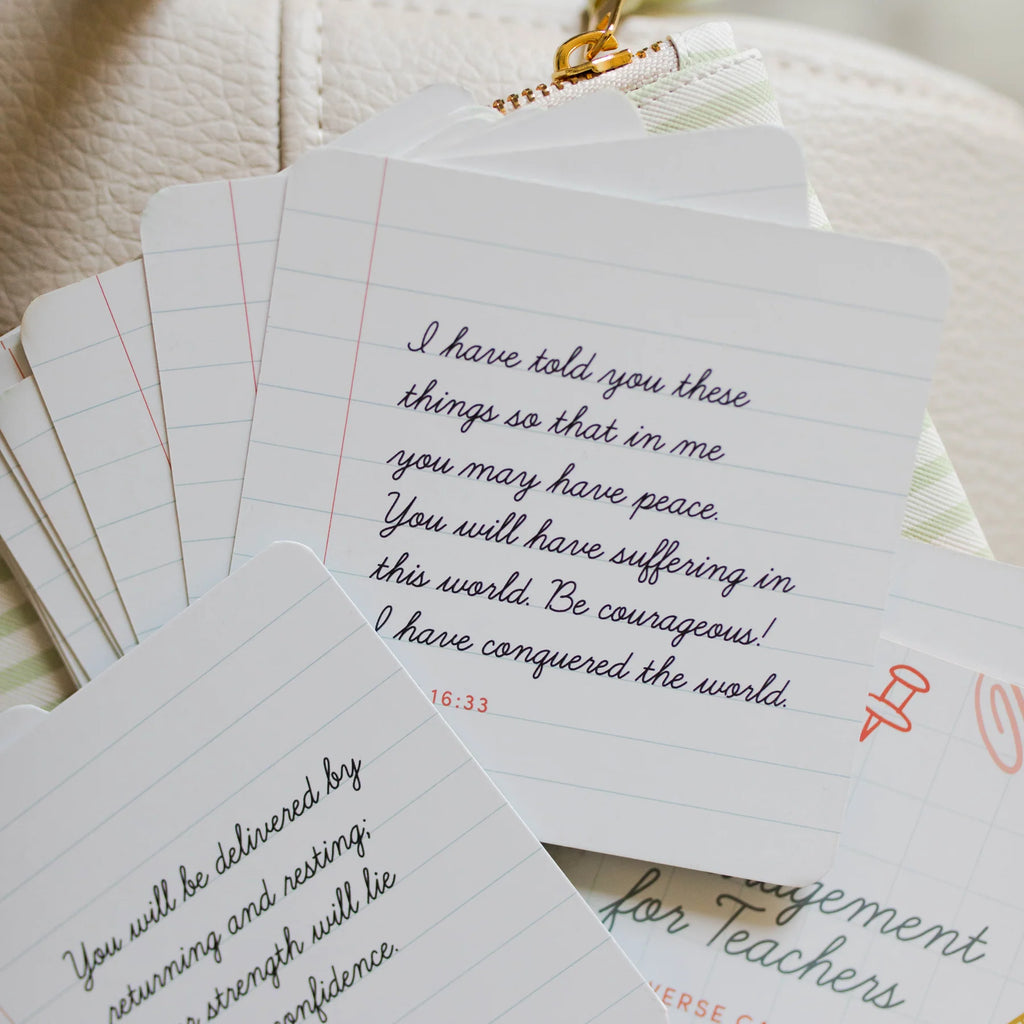 I have told you these
things so that in me
you may have peace.
You will have suffering in
this world. Be courageous!
I have conquered the world.
16:33
You will be delivered by
returning and resting;
strength will lie
for Teachers